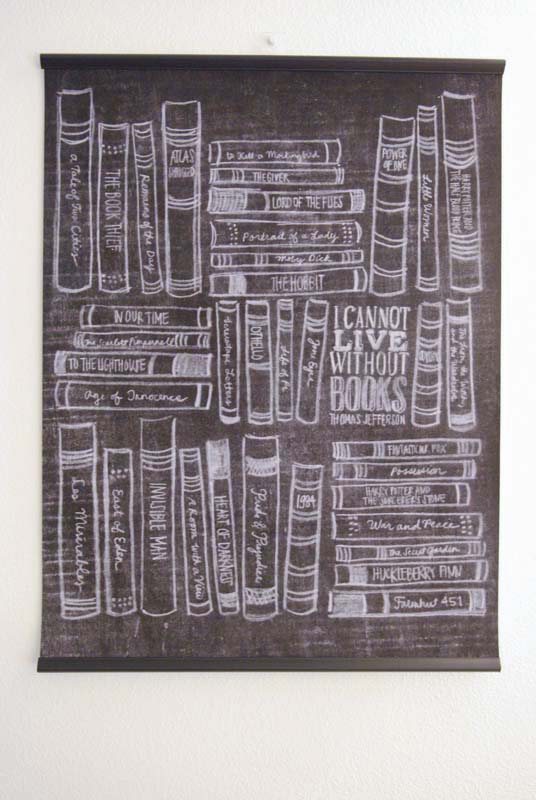 a Tale of Two Cities
THE BOOK THIEF
Remains of the Day
ATLAS
SHRUGGED
to Kill a Mockingbird
THE GIVER
LORD OF THE FLIES
Portrait of a Lady
Moby Dick
THE HOBBIT
POWER
OF ONE
Little Women
HARRY POTTER AND
THE HALF BLOOD PRINCE
IN OUR TIME
The Scarlet Pimpernell
TO THE LIGHTHOUSE
Age of Innocence
Screwtape Letters
OTHELLO
Life of Pi
Jane Eyre
I CANNOT
LIVE
WITHOUT
BOOKS
THOMAS JEFFERSON
The Lion, the Witch,
and the Wardrobe
Les Misérables
East of Eden
INVISIBLE MAN
A Room with a View
HEART OF DARKNESS
Pride & Prejudice
1984
FANTASTIC MR. FOX
Possession
HARRY POTTER AND
THE SORCERER'S STONE
War and Peace
The Secret Garden
HUCKLEBERRY FINN
Farenheit 451